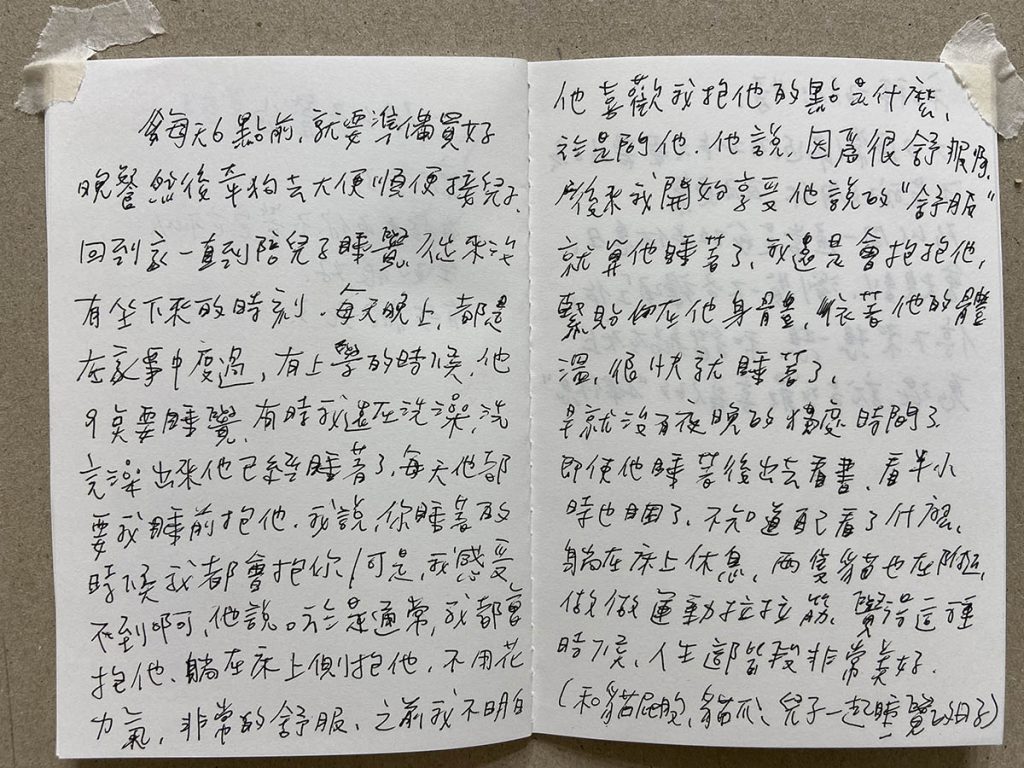 每天6點前,就要準備買好
晚餐 然後牽狗去大便順便接兒子,
回到家一直到陪兒子睡覺 從來沒
有坐下來的時刻. 每天晚上, 都是
在家事中度過, 有上學的時候, 他
9點要睡覺, 有時我還在洗澡, 洗
完澡出來他已經睡著了, 每天他都
要我睡前抱他. 我說, 你睡著的
時候我都會抱你/可是, 我感受
不到啊, 他說。於是通常, 我都會
抱他、躺在床上側抱他, 不用花
力氣, 非常的舒服, 之前我不明白
他喜歡我抱他的點是什麼,
於是問他. 他說, 因為很舒服啊.
後來我開始享受他說的"舒服"
就算他睡著了, 我還是會抱抱他,
緊貼在他身體, 依著他的體
溫, 很快就睡著了,
早就沒有夜晚的獨處時間了
即使他睡著後出去看書、看半小
時也睏了、不知道自己看了什麼、
躺在床上休息, 兩隻貓也在附近,
做做運動拉拉筋, 覺得這種
時候, 人生這階段非常美好.
(和貓屁股, 貓爪、兒子一起睡覺的日子)